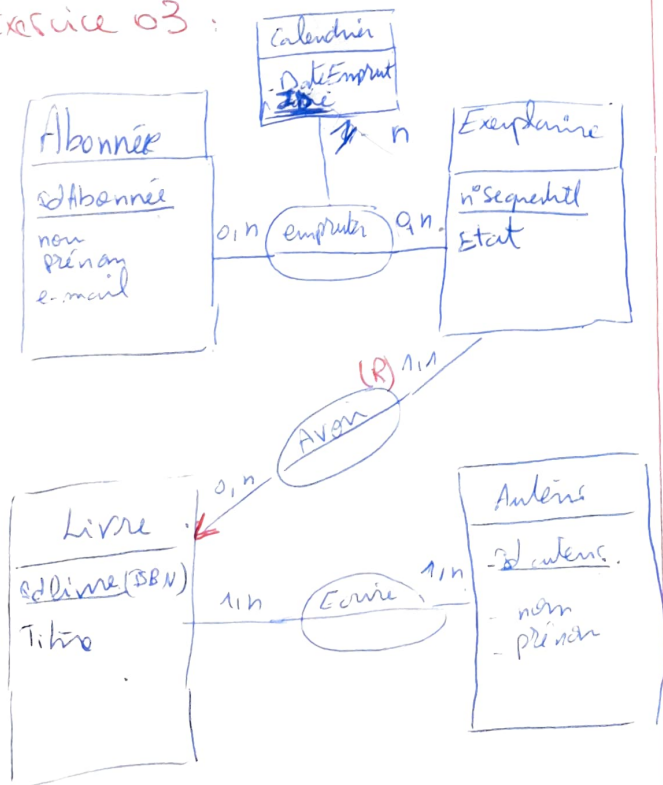 Exercice 03 :
Calendrier
- DateEmprut
n
Abonnée
idAbonnée
nom
prénom
e-mail
0,n
emprunter
0,n.
Exemplaire
n° Sequentiel
Etat
(R) 1,1
Avoir
0,n
Livre
idLivre (ISBN)
Titre
1,n
Ecrire
1,n
Auteur
- Id auteur.
- nom
- prénom